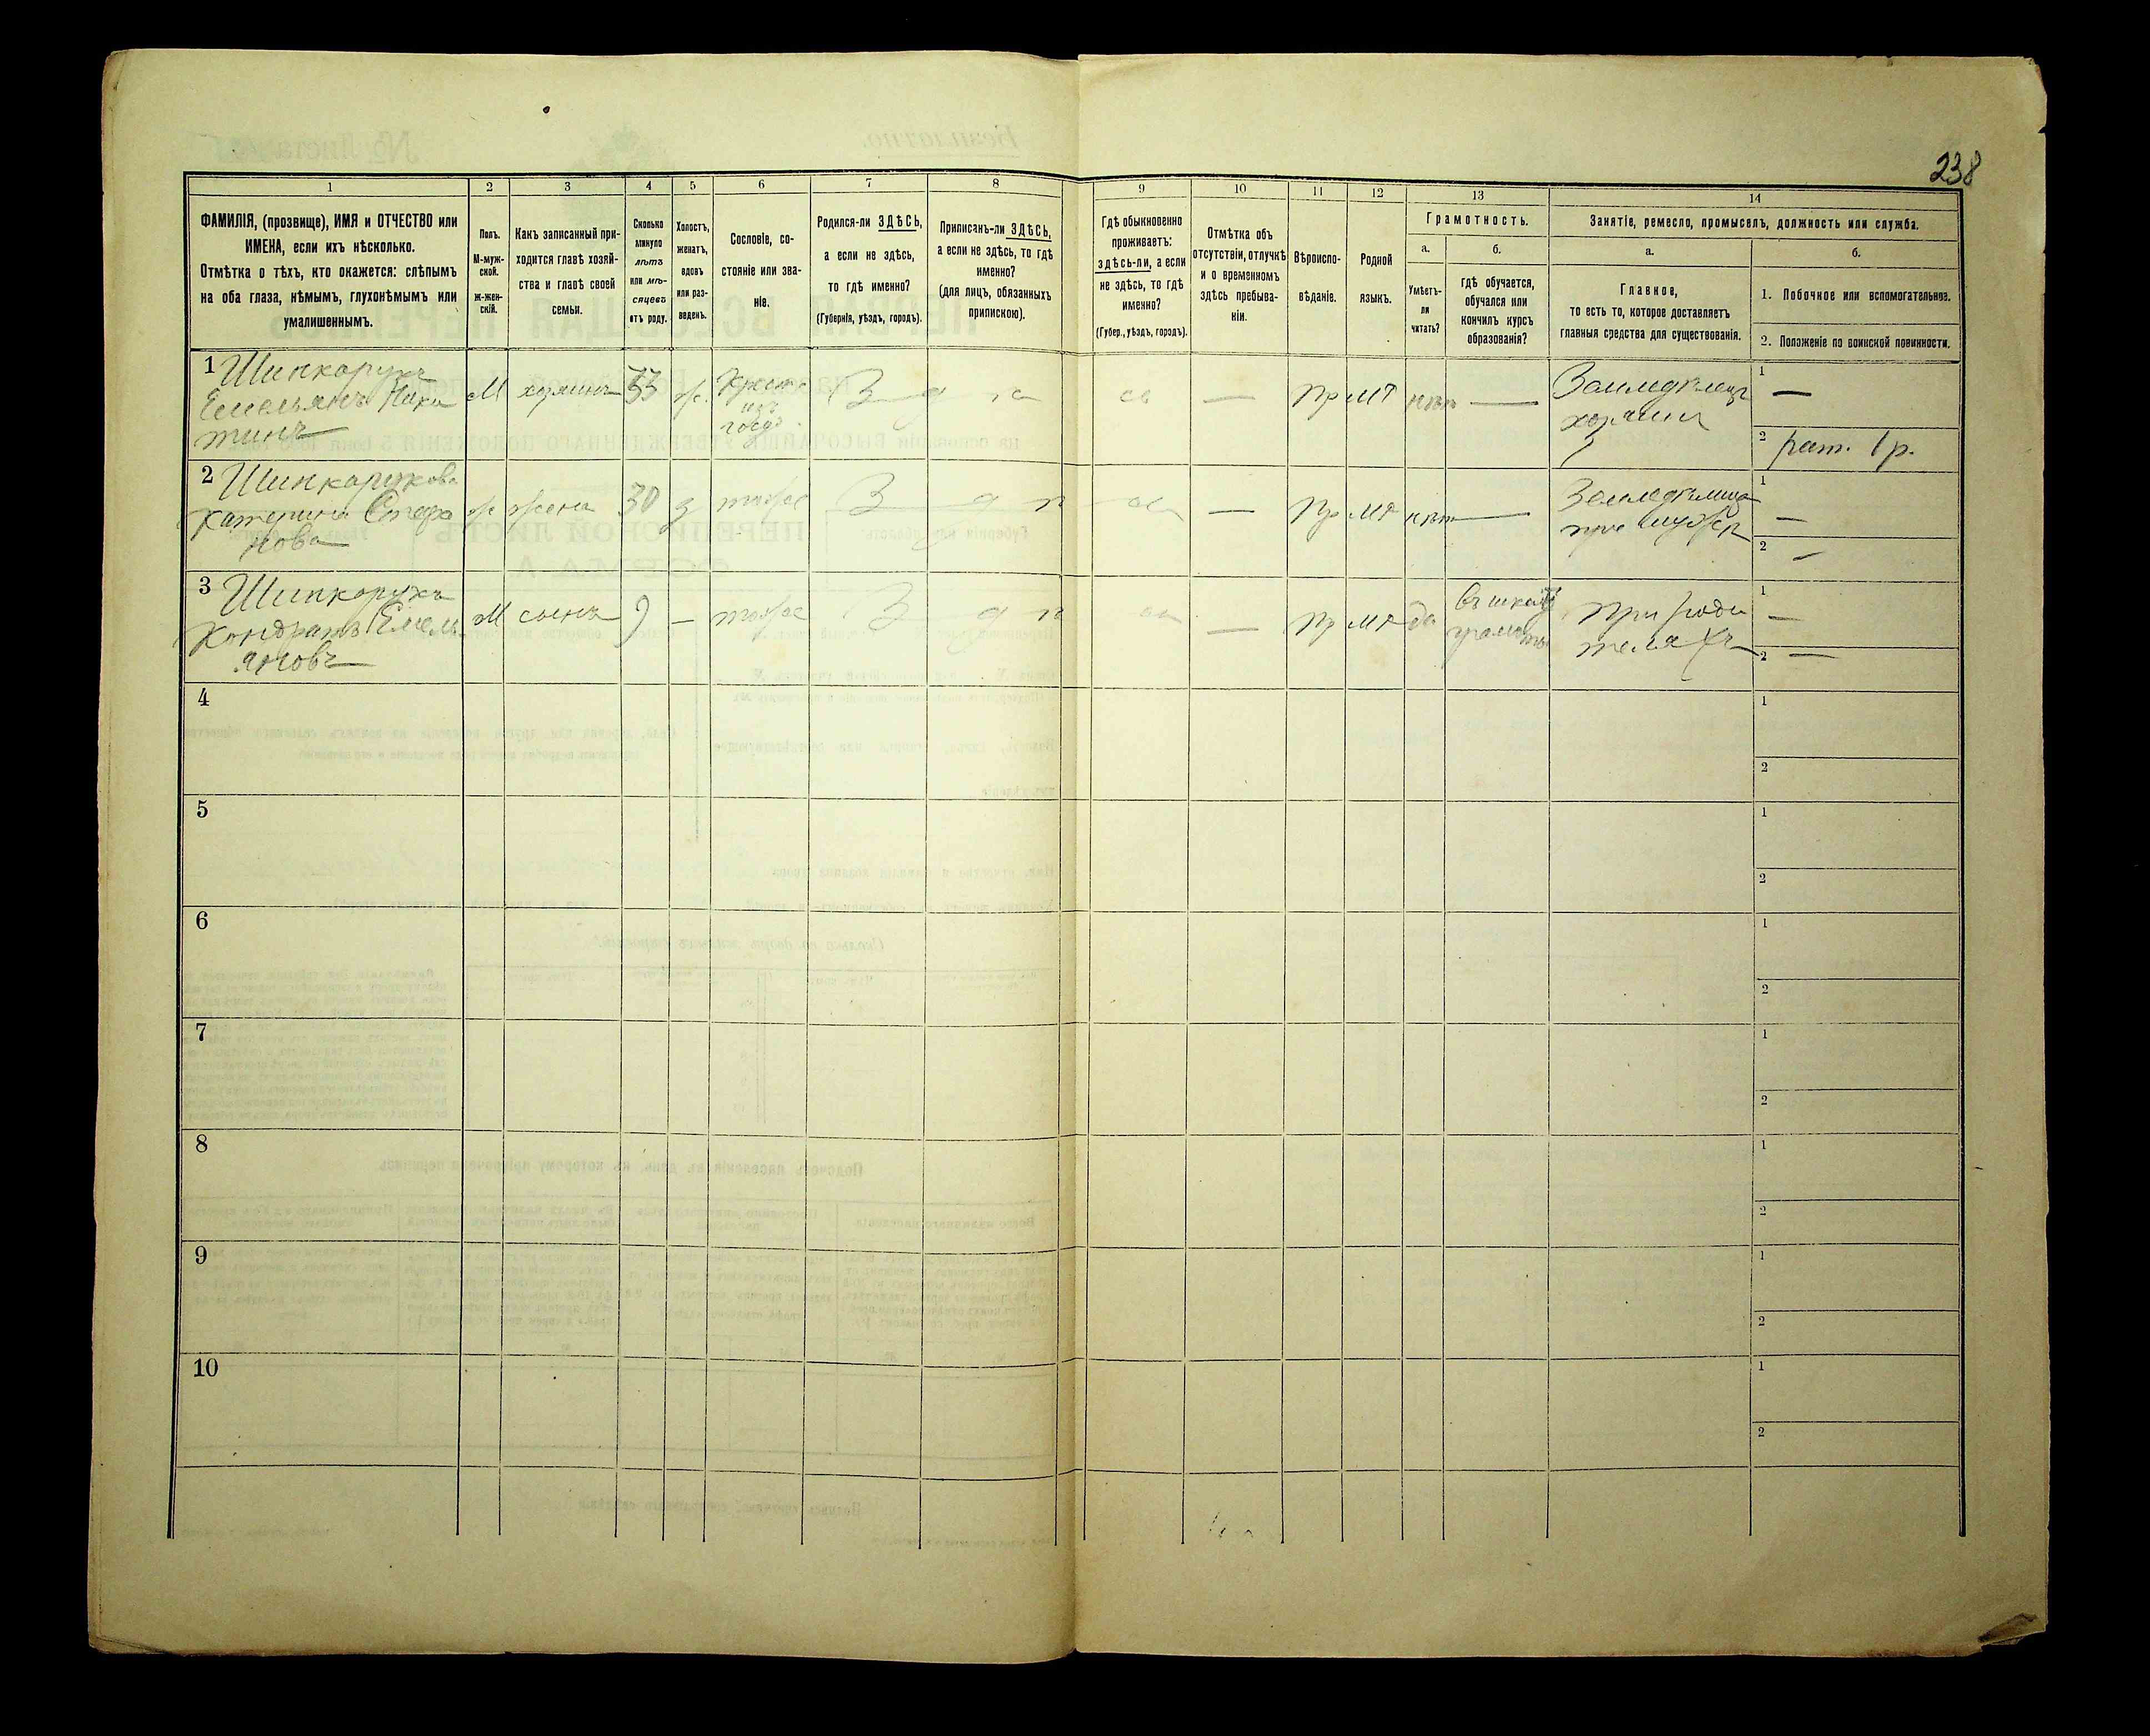 238
1 2 3 4 5 6 7 8 9 10 11 12 13 14
ФАМИЛІЯ, (прозвище), ИМЯ и ОТЧЕСТВО или
ИМЕНА, если ихъ нѣсколько.
Отмѣтка о тѣхъ, кто окажется: слѣпымъ
на оба глаза, нѣмымъ, глухонѣмымъ или
умалишеннымъ.
Полъ.
М-муж-
ской.
ж-жен-
скій.
Какъ записанный при-
ходится главѣ хозяй-
ства и главѣ своей
семьи.
Сколько
минуло
лѣтъ
или мѣ-
сяцевъ
отъ роду.
Холостъ,
женатъ,
вдовъ
или раз-
веденъ.
Сословіе, со-
стояніе или зва-
ніе.
Родился-ли ЗДѢСЬ,
а если не здѣсь,
то гдѣ именно?
(Губернія, уѣздъ, городъ).
Приписанъ-ли ЗДѢСЬ,
а если не здѣсь, то гдѣ
именно?
(для лицъ, обязанныхъ
припискою).
Гдѣ обыкновенно
проживаетъ:
здѣсь-ли, а если
не здѣсь, то гдѣ
именно?
(Губер., уѣздъ, городъ).
Отмѣтка объ
отсутствіи, отлучкѣ
и о временномъ
здѣсь пребыва-
ніи.
Вѣроиспо-
вѣданіе.
Родной
языкъ.
Грамотность.
а.
Умѣетъ-
ли
читать?
б.
гдѣ обучается,
обучался или
кончилъ курсъ
образованія?
Занятіе, ремесло, промыселъ, должность или служба.
а.
Главное,
то есть то, которое доставляетъ
главныя средства для существованія.
б.
1. Побочное или вспомогательное.
2. Положеніе по воинской повинности.
1 Шинкарукъ
Емельянъ Ники
тинъ
М
хозяинъ
33
ж.
Крест
изъ
госуд.
З д
—
Пр
МР
нѣтъ —
Земледѣлецъ
хозяинъ
1 —
2 рат. 1 р.
2 Шинкарукова
Катерина Стефа
нова
ж
жена
30
з
тоже
З д
—
Пр
МР
нѣтъ —
Земледѣлица
при мужѣ
1 —
2 —
3 Шинкарукъ
Кондратъ Емель
яновъ
М
сынъ
9
—
тоже
З д
—
Пр
МР
да
въ школѣ
грамоты
при роди
теляхъ
1 —
2 —
4
1
2
5
1
2
6
1
2
7
1
2
8
1
2
9
1
2
10
1
2